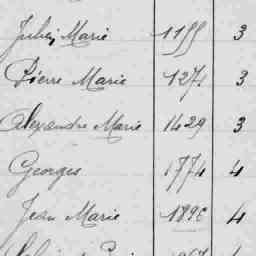 Julien Marie 1155 3
Pierre Marie 1271 3
Alexandre Marie 1429 3
Georges 1774 4
Jean Marie 1892 4